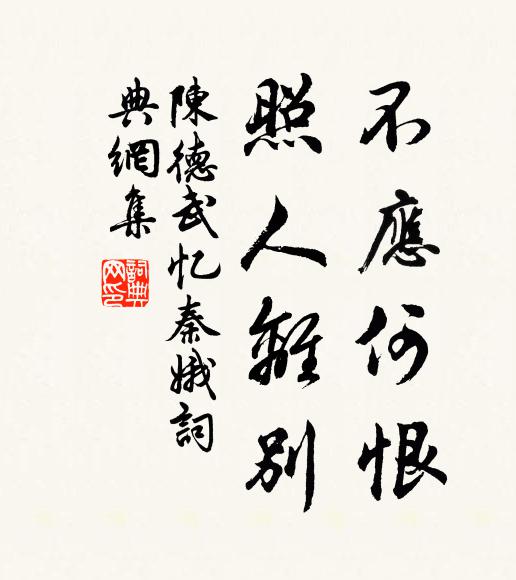 不應何恨
照人離別
陳德武忆秦娥詞
典網集
詞典网印